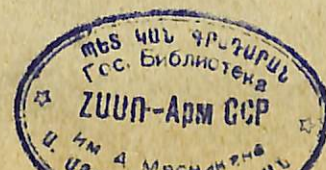 ՊԵՏ ԿԱՆ ԳՐԱԴԱՐԱՆ
Гос. Библиотека
ՀՍՍՌ-Арм ССР
им А Мясникяна